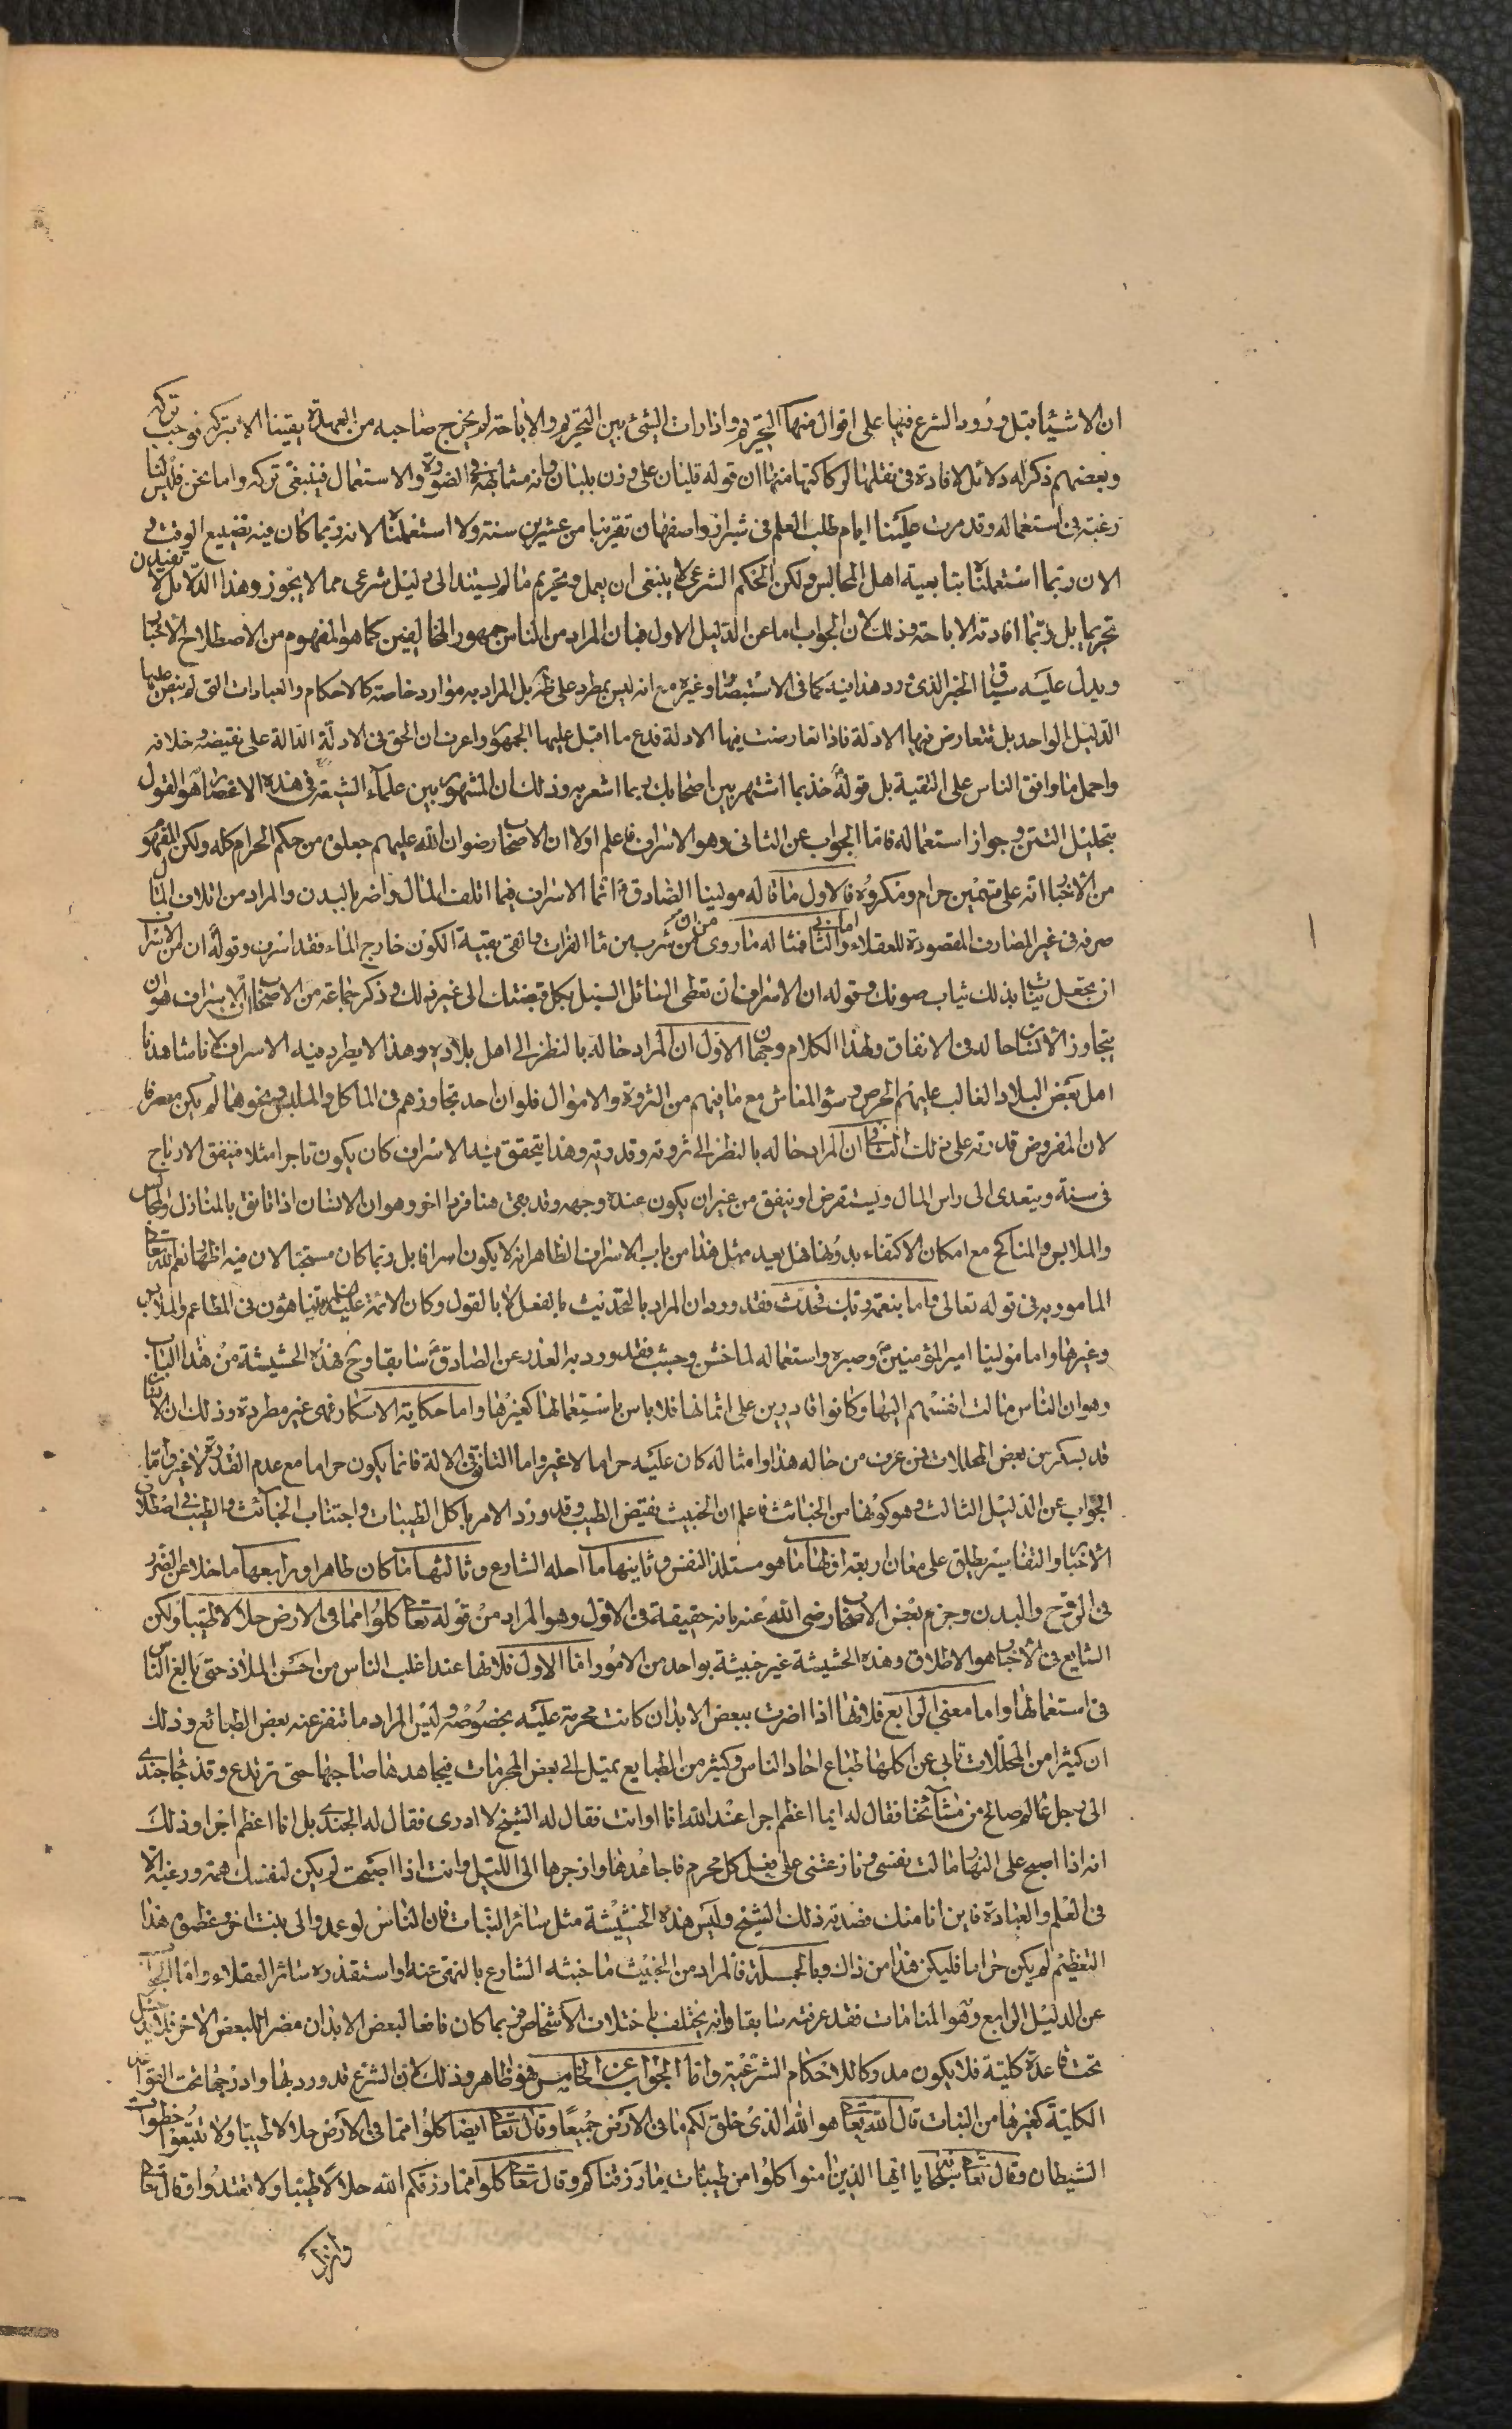 ان الاشياء قبل ورود الشرع فيها على اقوال منها التحريم واذا دارت الشئ بين التحريم والاباحة لم يخرج صاحبه من العهدة يقينا الا بتركه فوجب تركه
وبعضهم ذكر له دلائل لافادة فى نقلها لركاكتها منها ان قوله قليان على وزن بليان وانه مشابهة فى الصورة والاستعمال فينبغى تركه واما نحن فليس لنا
رغبة فى استعماله وقد مرت علينا ايام طلب العلم فى شيراز واصفهان تقريبا من عشرين سنة ولا استعملنا لانه ربما كان فيه تضييع الوقت و
الان ربما استعملنا بتابعية اهل المجالس ولكن الحكم الشرعى لا ينبغى ان يعمل وتحريم ما لم يستند الى دليل شرعى مما لا يجوز وهذا الدلائل لا تفيد
تحريما بل ربما افادته الاباحة وذلك لان الجواب اما عن الدليل الاول فبان المراد من الناس جمهور المخالفين كما هو المفهوم من الاصطلاح الاخبار
ويدل عليه سياق الخبر الذى ورد هذا فيه كما فى الاستبصار وغيره مع انه ليس بمطرد على ظهر بل المراد به موارد خاصة كالاحكام والعبادات التى لم ينص عليها
الدليل الواحد بل تتعارض فيها الادلة فاذا تعارضت فيها الادلة فدع ما اقبل عليها الجمهور واعرف ان الحق فى الادلة الدالة على نقيضه وخلافه
واحمل ما وافق الناس على التقية بل قوله خذ بما اشتهر بين اصحابك بما اشعر به وذلك ان المشهور بين علماء الشيعة فى هذه الاعصار هو القول
بتحليل التتن وجواز استعماله فاما الجواب عن الثانى وهو الاسراف فاعلم اولا ان الاصحاب رضوان الله عليهم جعلوه من حكم الحرام كله ولكن المفهوم
من الاخبار انه على قسمين حرام ومكروه فالاول ما قاله مولينا الصادق انما الاسراف فيما اتلف المال واضر بالبدن والمراد من اتلاف المال
صرفه فى غير المصارف المقصودة للعقلاء واما الثانى فمثاله ما روى من ان من شرب من ماء الفرات والقى بقية الكوز خارج الماء فقد اسرف وقوله ان من الاسراف
ان تجعل ثياب بذلك ثياب صونك وقوله ان الاسراف ان تعطى السائل السنبل بكل قبضتك الى غير ذلك وذكر جماعة من الاصحاب ان الاسراف هو ان
يتجاوز الانسان حاله فى الانفاق ولهذا الكلام وجهان الاول ان المراد حاله بالنظر الى اهل بلاده وهذا لا يطرد فيه الاسراف لانا شاهدنا
اهل بعض البلاد الغالب عليهم الحرص وسؤ المعاش مع ما فيهم من الثروة والاموال فلو ان احد تجاوزهم فى الماكل والملبس ونحوهما لم يكن مصرفا
لان المفروض قدرته على ذلك الثانى ان المراد حاله بالنظر الى ثروته وقدرته وهذا يتحقق فيه الاسراف كان يكون تاجرا مثلا فينفق الارباح
فى سنة ويتعدى الى راس المال ويستقرض او ينفق من غير ان يكون عنده وجهه وقد بقى هنا فرد اخر وهو ان الانسان اذا تانق بالمنازل والمجالس
والملابس والمناكح مع امكان الاكتفاء بدونها فهل يعد مثل هذا من باب الاسراف الظاهر انه لا يكون اسرافا بل ربما كان مستحبا لان فيه اظهارا نعم الله تعالى
المامور به فى قوله تعالى واما بنعمة ربك فحدث فقد ورد ان المراد بالتحديث بالفعل لا بالقول وكان الائمة عليهم السلام يتباهون فى المطاعم والملابس
وغيرها واما مولينا امير المؤمنين وصبره واستعماله لما خشن وجشب فقد ورد به العذر عن الصادق سابقا وح فهذه الحشيشة من هذا الباب
وهو ان الناس مالت انفسهم اليها وكانوا قادرين على اثمانها فلا باس باستعمالها كغيرها واما حكاية الاسكار فهى غير مطردة وذلك ان الانسان
قد يسكر من بعض المحللات فمن عرف من حاله هذا وامثاله كان عليه حراما لا غير واما التانق فى الالة فانما يكون حراما مع عدم القدرة لا غير واما
الجواب عن الدليل الثالث وهو كونها من الخبائث فاعلم ان الخبيث نقيض الطيب وقد ورد الامر باكل الطيبات واجتناب الخبائث والطيب فى اصطلاح
الاخبار والتفاسير يطلق على معان اربعة اولها ما هو مستلذ النفس وثانيها ما احله الشارع وثالثها ما كان طاهرا ورابعها ما خلا عن الضرر
فى الروح والبدن وجزم بعض الاصحاب رضى الله عنه بانه حقيقة فى الاول وهو المراد من قوله تعا كلوا مما فى الارض حلالا طيبا ولكن
الشايع فى الاخبار هو الاطلاق وهذه الحشيشة غير خبيثة بواحد من الامور اما الاول فلانها عند اغلب الناس من احسن الملاذ حتى بالغ الناس
فى استعمالها واما معنى الرابع فلانها اذا اضرت ببعض الابدان كانت محرمة عليه بخصوصه وليس المراد ما تنفر عنه بعض الطبائع وذلك
ان كثيرا من المحللات تابى عن اكلها طباع احاد الناس وكثير من الطبايع تميل الى بعض المحرمات فيجاهدها صاحبها حتى ترتدع وقد جاء جندى
الى رجل عالم صالح من مشائخنا فقال له ايما اعظم اجرا عند الله انا او انت فقال له الشيخ لا ادرى فقال له الجندى بل انا اعظم اجرا وذلك
انه اذا اصبح على النهار مالت نفسى ونازعتنى على فعل كل محرم فاجاهدها وازجرها الى الليل وانت اذا اصبحت لم يكن لنفسك همة ورغبة الا
فى العلم والعبادة فاين انا منك فصدقه ذلك الشيخ وليس هذه الحشيشة مثل سائر النبات فان الناس لو عمدوا الى نبت اخر وعظموه هذا
التعظيم لم يكن حراما فليكن هذا من ذاك وبالجملة فالمراد من الخبيث ما خبثه الشارع بالنهى عنه او استقذره سائر العقلاء واما الجواب
عن الدليل الرابع وهو المنامات فقد عرفته سابقا وانه يختلف باختلاف الاشخاص فربما كان نافعا لبعض الابدان مضرا للبعض الاخر فلا يدخل
تحت قاعدة كلية فلا يكون مدركا للاحكام الشرعية واما الجواب عن الخامس فهو ظاهر وذلك لان الشرع قد ورد بها وادرجها تحت القواعد
الكلية كغيرها من النبات قال الله تعا هو الله الذى خلق لكم ما فى الارض جميعا وقال تعا ايضا كلوا مما فى الارض حلالا طيبا ولا تتبعوا خطوات
الشيطان وقال تعا سبحانه يا ايها الذين امنوا كلوا من طيبات ما رزقناكم وقال تعا كلوا مما رزقكم الله حلالا طيبا ولا تعتدوا وقال تعا